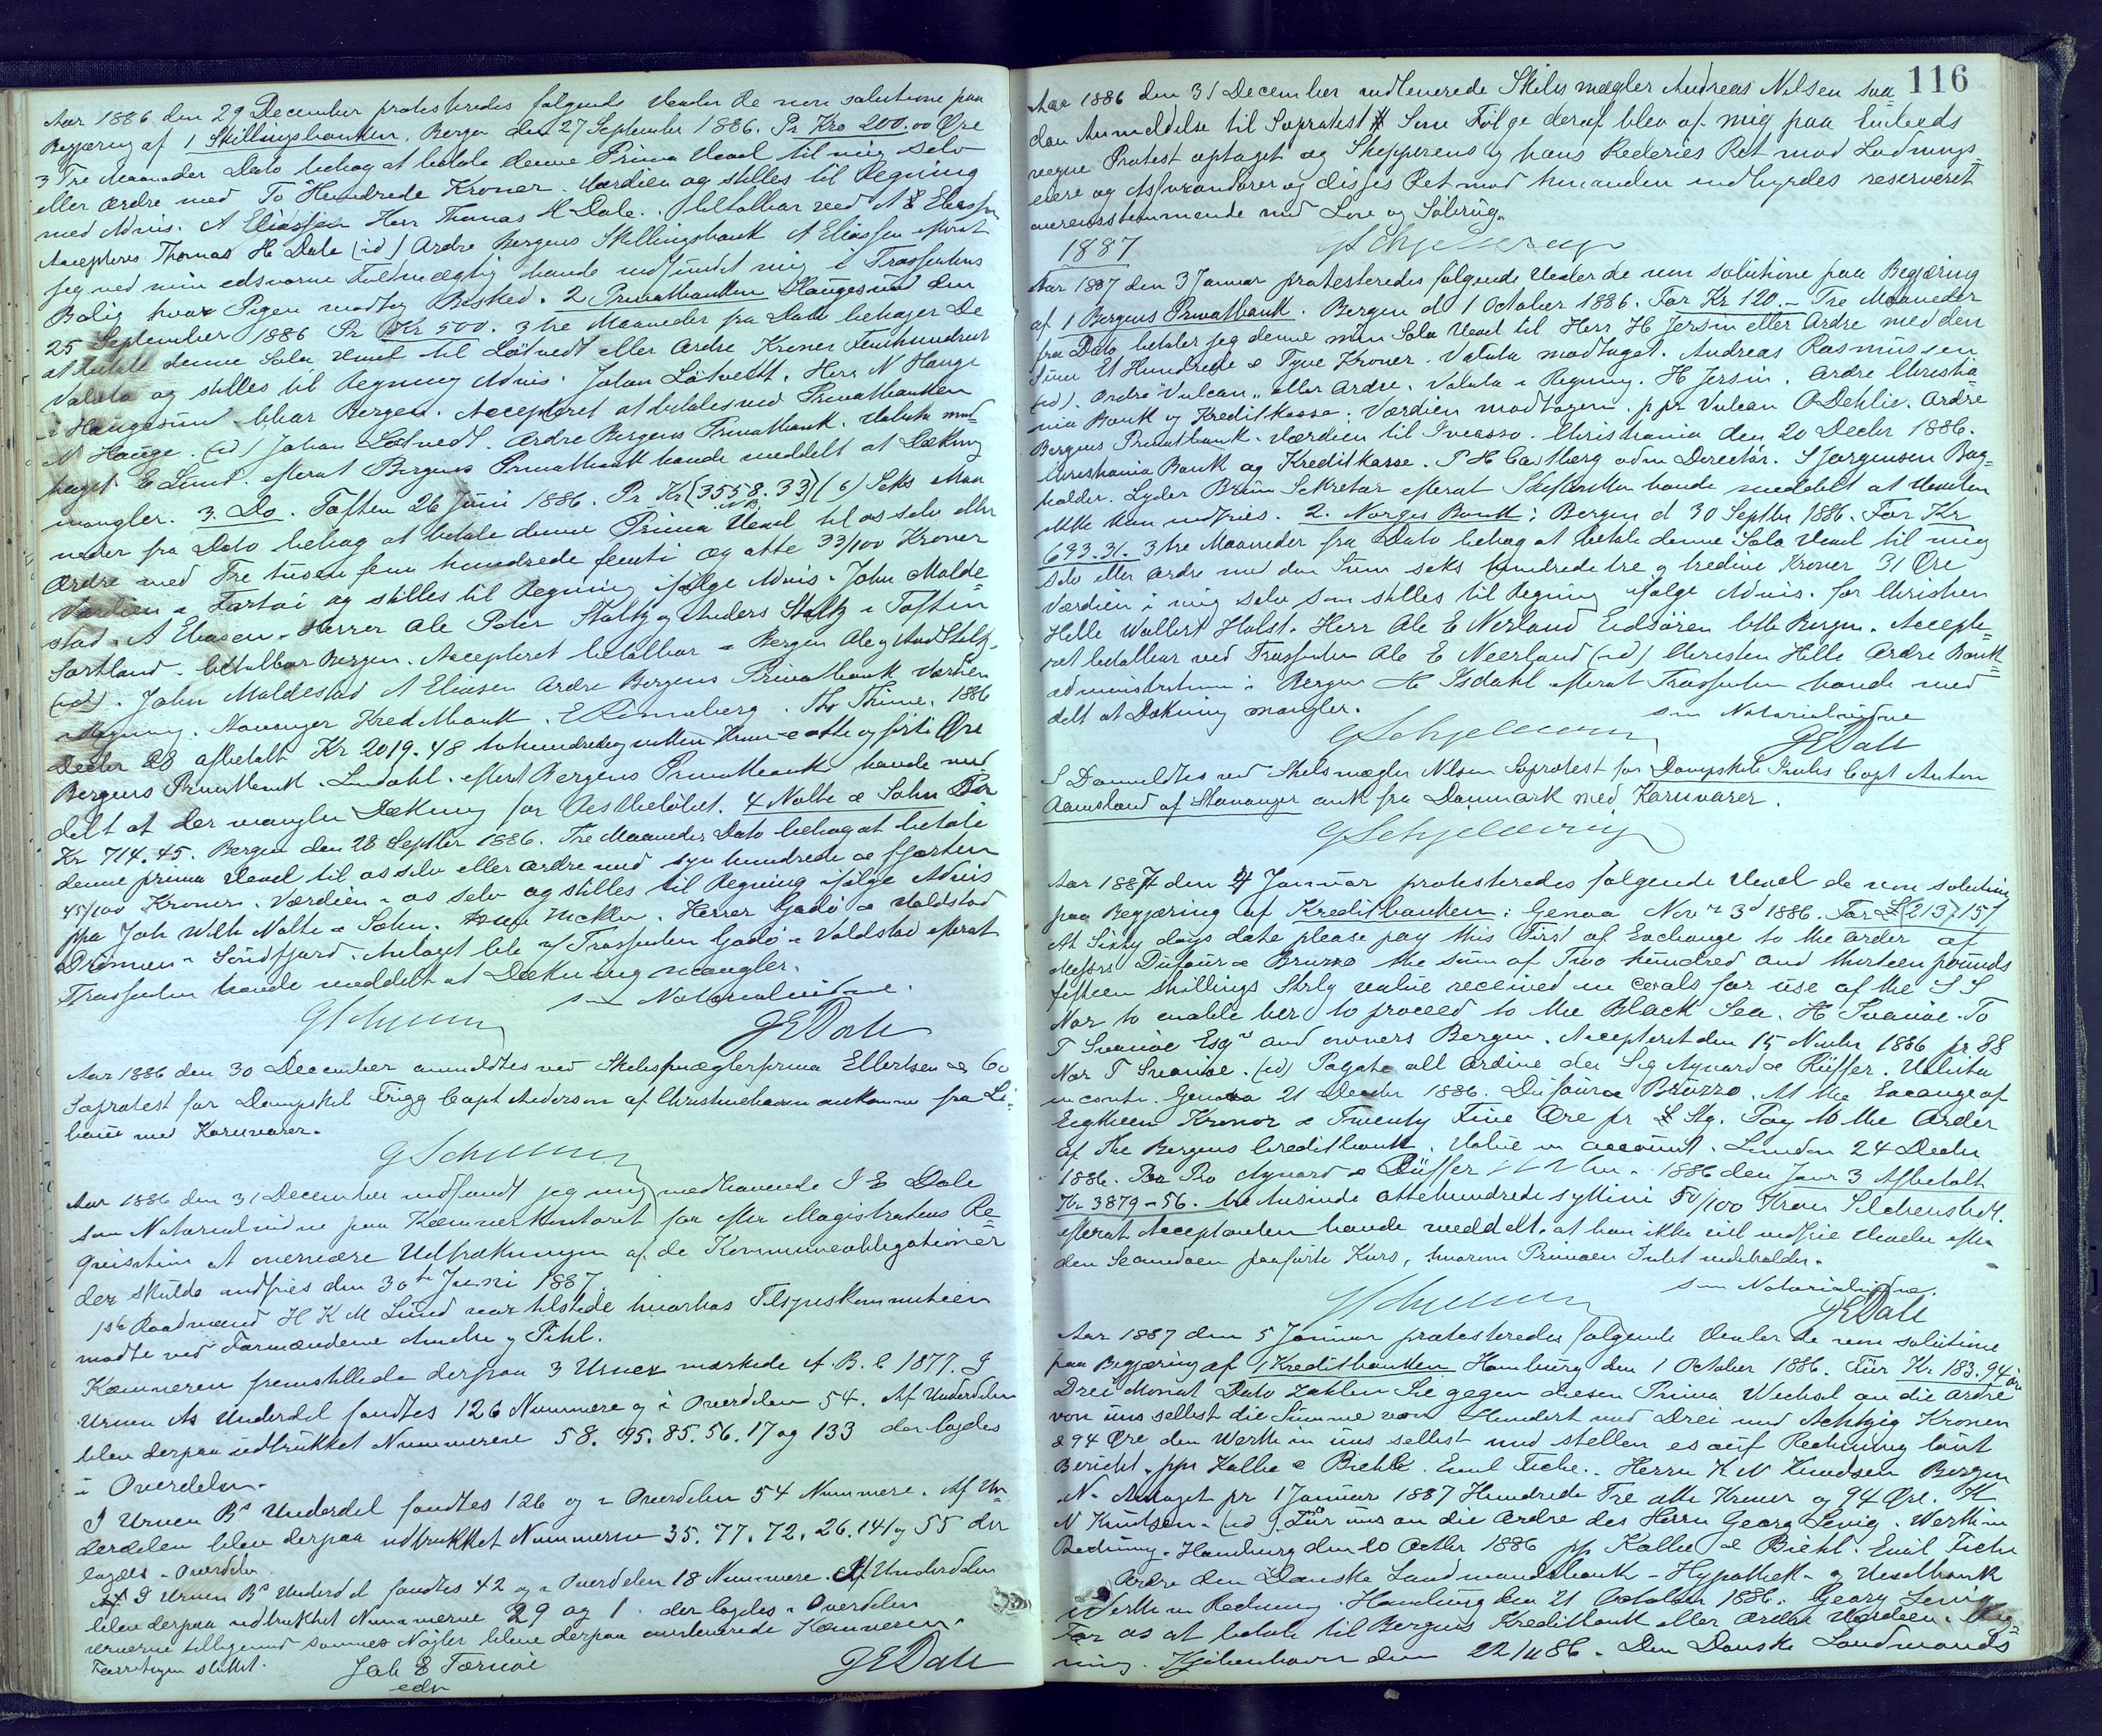 Aar 1886 den 29 December protesteredes følgende Vexler de non solutione paa
Begjæring af 1 Skillingsbanken. Bergen den 27 September 1886. Pr Kro 200.00 Øre
3 Tre Maaneder Dato behag at betale denne Prima Vexel til mig selv
eller Ordre med To Hundrede Kroner. Værdien og stilles til Regning
med Advis. A Eliassen Herr Thomas H Dale. betalbar ved A Eliassen
Accepteres Thomas H Dale (id) Ordre Bergens Skillingsbank A Eliassen efterat
jeg ved min edsvorne Fuldmægtig havde indfundet mig i Trassentens
Bolig hvor Pigen modtog Besked. 2 Privatbanken Haugesund den
25 September 1886 Pr Kr 500. 3 tre Maaneder fra Dato behager De
at betale denne Sola Vexel til Løtvedt eller Ordre Kroner Femhundrede
Valuta og stilles til Regning Advis. Johan Løtvedt. Herr N Hauge
i Haugesund btbar Bergen. Accepteret at betales ved Privatbanken
N Hauge. (id) Johan Løtvedt. Ordre Bergens Privatbank. Valuta mod
taget E Lund. efterat Bergens Privatbank havde meddelt at Dækning
mangler. 3. Do. Toften 26 Juni 1886. Pr Kr (3558.33) (6) Seks Maa
neder fra Dato behag at betale denne Prima Vexel til os selv eller
Ordre med Tre tusen fem hundrede femti og otte 33/100 Kroner
Værdien i Fartøi og stilles til Regning ifølge Advis. John Malde=
stad. A Eliasen. Herrer Ole Peter Stoltz og Anders Stoltz i Toften
Sortland. betalbar Bergen. Accepteret betalbar i Bergen Ole og And Stolz.
(id). John Maldestad A Eliasen Ordre Bergens Privatbank Værdien
i Regning. Stavanger Kreditbank. E Rønneberg. Th Thime. 1886
Decbr 28 afbetalt Kr 2019.48 tohundredeognitten Kroner otte og førti Øre
Bergens Privatbank. Lindahl. efterat Bergens Privatbank havde med
delt at der mangler Dækning for Restbeløbet. 4 Nolte & Sohn Por
Kr 714.45. Bergen den 28 Septbr 1886. Tre Maaneder Dato behag at betale
denne prima Vexel til os selv eller Ordre med syv hundrede & fjorten
45/100 Kroner. Værdien i os selv og stilles til Regning ifølge Advis
ppa Joh Wilh Nolte & Sohn. Herrer Gadø & Valdstad
Drømmen i Søndfjord. Antaget btle af Trassenten Gadø & Valdstad efterat
Trassenten havde meddelt at Dækning mangler.
som Notarialvidne.
G Schjelderup
J E Dale
Aar 1886 den 30 December anmeldtes ved Skibsmæglerfirma Ellertsen & Co
Søprotest for Dampskib Trigg Capt Anderson af Christinehavn ankommen fra Li=
bau med Kornvarer.
G Schjelderup
Aar 1886 den 31 December indfandt jeg mig medhavende J E Dale
som Notarialvidne paa Kæmnerkontoret for efter Magistratens Re=
quisition at overvære Udtrækningen af de Kommuneobligationer
der skulde indfries den 30te Juni 1887.
1ste Raadmand H K M Lund var tilstede hvorhos Tilsynskommitteen
mødte ved Formændene Amche og Pihl.
Kæmneren fremstillede derpaa 3 Urner mærkede A. B. C 1877. I
Urnen As Underdel fandtes 126 Nummere og i Overdelen 54. Af Underdelen
blev derpaa udtrukket Nummerne 58. 95. 85. 56. 17 og 133 der lagdes
i Overdelen.
I Urnen Bs Underdel fandtes 126 og i Overdelen 54 Nummere. Af Un=
derdelen blev derpaa udtrukket Nummerne 35. 77. 72. 26. 141 og 55 der
lagdes i Overdelen.
I Urnen Bs Underdel fandtes 42 og i Overdelen 18 Nummere. Af Underdelen
blev derpaa udtrukket Nummerne 29 og 1 der lagdes i Overdelen
urnerne tilligemed sammes Nøgler blev derpaa overleverede Kæmneren.
Forretningen sluttet.
Jak E Tornøe
edv
J E Dale
116
Aar 1886 den 31 December indleverede Skibsmægler Andreas Nilsen saa
dan Anmeldelse til Søprotest Som Følge deraf blev af mig paa Embeds
vegne Protest optaget og Skipperens og hans Rederies Ret mod Ladnings=
eiere og Assurandører og disses Ret mod hinanden indbyrdes reserveret
overensstemmende med Lov og Søbrug.
G Schjelderup
1887
Aar 1887 den 3 Januar protesteredes følgende Vexler de non solutione paa Begjæring
af 1 Bergens Privatbank. Bergen d 1 October 1886. For Kr 120.- Tre Maaneder
fra Dato betaler jeg denne min Sola Vexel til Herr H Jersin eller Ordre med den
Sum Et Hundrede & Tyve Kroner. Valuta modtaget. Andreas Rasmussen
(id). Ordre "Vulcan" eller Ordre. Valuta i Regning. H Jersin. Ordre Christia
nia Bank og Kreditkasse. Værdien modtagen. p pr Vulcan O Dehlie. Ordre
Bergens Privatbank. Værdien til Incasso. Christiania den 20 Decbr 1886.
Christiania Bank og Kreditkasse. P H Castberg adm Directør. S Jørgensen Bog=
holder. Lyder Brun Sekretær efterat havde meddelt at Vexelen
ikke kan indfries. 2. Norges Bank: Bergen d 30 Septbr 1886. For Kr
693.31. 3 tre Maaneder fra Dato behag at betale denne Sola Vexel til mig
selv eller Ordre med den Sum seks hundrede tre og tredive Kroner 31 Øre
Værdien i mig selv som stilles til Regning ifølge Advis. for Christen
Helle Wollert Holst. Herr Ole E Nerland Eidsøren btb Bergen. Accepte=
ret betalbar ved Trassenten Ole E Neerland (id) Christen Helle Ordre Bank=
administrationen i Bergen H Isdahl efterat Trassenten havde med
delt at Dækning mangler.
som Notarialvidne
G Schjelderup
J E Dale
S D anmeldtes ved Skibsmægler Nilsen Søprotest for Dampskib Capt Anton
Aamsland af Stavanger ank fra Danmark med Kornvarer.
G Schjelderup
Aar 1887 den 4 Januar protesteredes følgende Vexel de non solutione
paa Begjæring af Kreditbanken: Genoa Novr 3d 1886. For £ (213).15/
At Sixty days date please pay this First of Exchange to the order of
Messrs Dufour & Bruzzo the sum of Two hundred and thirteen pounds
fifteen shillings Strlg value received in coals for use of the S S
Nor to enable her to proceed to the Black Sea. H Svanøe. To
T Svanøe Esqr and owners Bergen. Accepteret den 15 Novbr 1886 pr SS
Nor T Svanøe. (id) Pagate all ordine dei Sig Aynard & Rüffer. Valuta
in conto. Genova 21 Decbr 1886. Dufour & Bruzzo. At the Excange of
Eigtheen Kronor & Twenty Five Øre pr £ Stg. Pay to the Order
of The Bergens Creditbank. Value in account. London 24 Decbr
1886. Pro Aynard & Rüffer 1886 den Janr 3 Afbetalt
Kr 3879-56. tre tusinde ottehundrede syttini 56/100 Kroner
efterat Acceptanten havde meddelt, at han ikke vil indfrie Vexelen efter
den Secundaen paaførte Kurs, hvorom Primaen Intet indeholder.
som Notarialvidne.
G Schjelderup
J E Dale
Aar 1887 den 5 Januar protesteredes følgende Vexler de non solutione
paa Begjæring af 1 Kreditbanken Hamburg den 1 October 1886. Für Kr. 183.94 öre
Drei Monat Dato zahlen Sie gegen diesen Prima Wechsel an die Ordre
von uns selbst die Summe von Hundert und Drei und Achtzig Kronen
& 94 Øre den Werth in uns selbst und stellen es auf Rechnung laut
Bericht. ppr Kallee & Biehl. Emil Fiche. Herrn K N Knudsen Bergen
N. Antaget pr 1 Januar 1887 Hundrede Tre otte Kroner og 94 Øre. K
N Knutsen. (id) Für uns an die Ordre des Herrn Georg Levig. Werth in
Rechnung. Hamburg den 20 Octbr 1886 pp Kallee & Biehl. Emil Fiche
Ordre den Danske Landmandsbank - Hypothek- og Vexelbank
Werth in Rechnung. Hamburg den 21 October 1886. Georg Levig
For os at betale til Bergens Kreditbank eller Ordre Værdien i Reg=
ning. Kjøbenhavn den 22/11 86. Den Danske Landmands